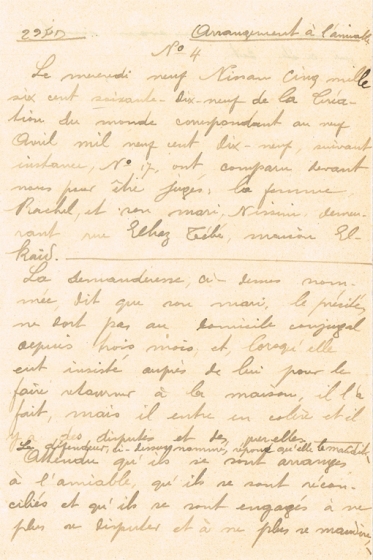 Arrangement à l'amiable
No 4
Le mercredi neuf Nissan Cinq mille
six cent soixante-dix-neuf de la Créa-
tion du monde correspondant au neuf
Avril mil neuf cent dix-neuf, suivant
instance, No 17, ont comparu devant
nous pour être jugés, la femme
Rachel, et son mari, Nissim, demeu-
rant rue maison El-
Kaïd.
La demanderesse, ci-dessus nom-
mée, dit que son mari, le précité,
ne dort pas au domicile conjugal
depuis trois mois, et, lorsqu'elle
eut insisté auprès de lui pour le
faire retourner à la maison, il l'a
fait, mais il entre en colère et il
y a des disputes et des querelles.
Le défendeur, ci-dessus nommé, répond qu'elle le maudit.
Attendu qu'ils se sont arrangés
à l'amiable, qu'ils se sont récon-
ciliés et qu'ils se sont engagés à ne
plus se disputer et à ne plus se maudire,